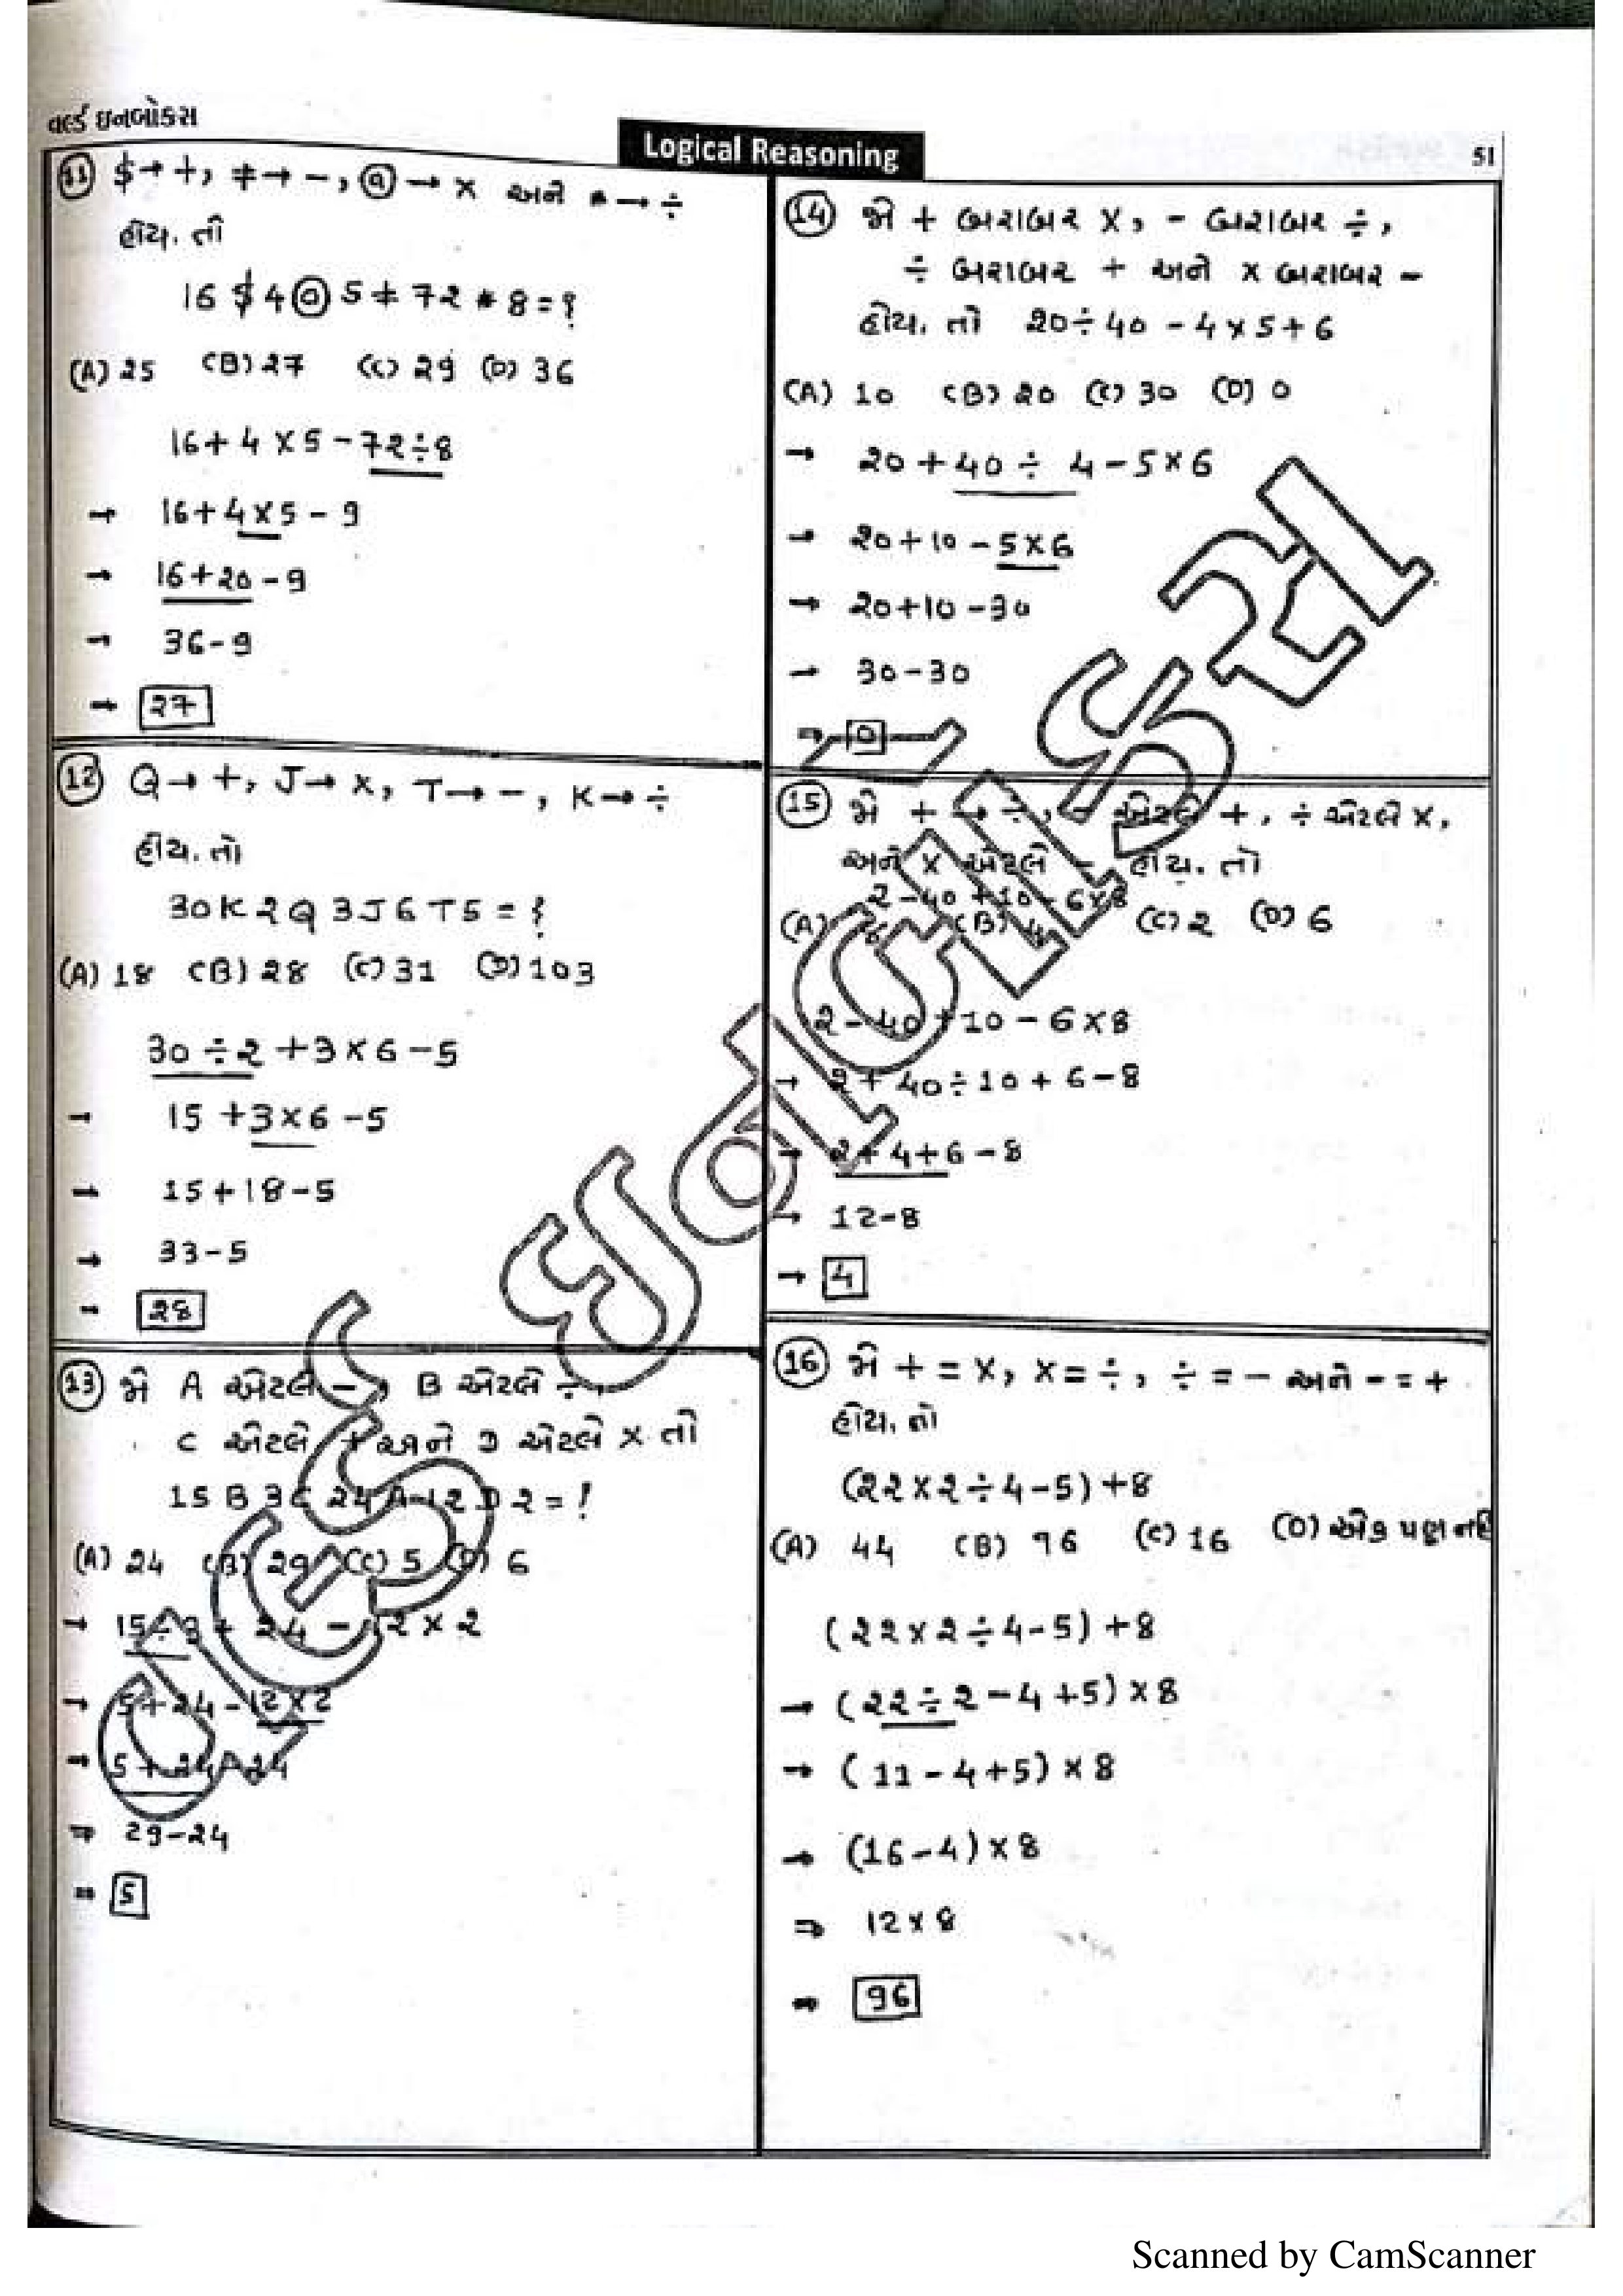 વર્લ્ડ ઇનબોક્સ
Logical Reasoning
51
11 $→+, ≠→-, @→× અને *→÷
હોય. તો
16 $ 4 @ 5 ≠ 72 * 8 = ?
(A) 25 (B) 27 (C) 29 (D) 36
16+4×5-72÷8
→ 16+4×5-9
→ 16+20-9
→ 36-9
→ 27
12 Q→+, J→×, T→-, K→÷
હોય. તો
30K2Q3J6T5=?
(A) 18 (B) 28 (C) 31 (D) 103
30÷2+3×6-5
→ 15+3×6-5
→ 15+18-5
→ 33-5
→ 28
13 જો A એટલે -, B એટલે ÷,
C એટલે + અને D એટલે × તો
15 B 3 C 24 A 12 D 2 = ?
(A) 24 (B) 29 (C) 5 (D) 6
→ 15÷3+24-12×2
→ 5+24-12×2
→ 5+24-24
⇒ 29-24
= 5
14 જો + બરાબર ×, - બરાબર ÷,
÷ બરાબર + અને × બરાબર -
હોય. તો 20÷40-4×5+6
(A) 10 (B) 20 (C) 30 (D) 0
→ 20+40÷4-5×6
→ 20+10-5×6
→ 20+10-30
→ 30-30
⇒ 0
15 જો + → ÷, - એટલે +, ÷ એટલે ×,
અને × એટલે - હોય. તો
2-40+10-6×8
(A) (B) 4 (C) 2 (D) 6
2-40+10-6×8
→ 2+40÷10+6-8
→ 2+4+6-8
→ 12-8
→ 4
16 જો +=×, ×=÷, ÷=- અને -=+
હોય. તો
(22×2÷4-5)+8
(A) 44 (B) 96 (C) 16 (D) એક પણ નહિ
(22×2÷4-5)+8
→ (22÷2-4+5)×8
→ (11-4+5)×8
→ (16-4)×8
⇒ 12×8
⇒ 96
Scanned by CamScanner